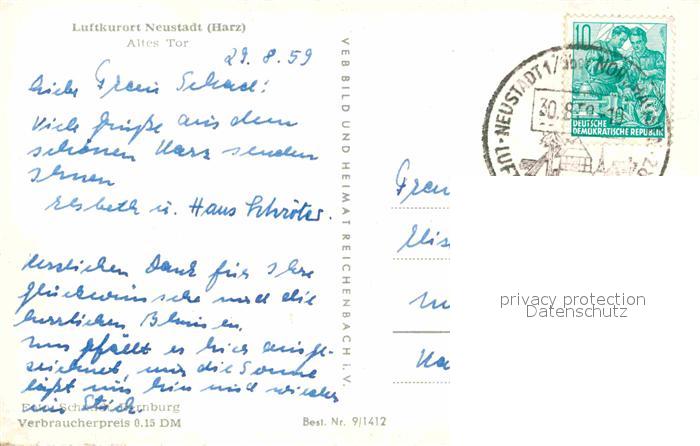 Luftkurort Neustadt (Harz)
Altes Tor
29.8.59
Liebe Frau Schad!
Viele Grüße aus dem
schönen Harz senden
Ihnen
Elsbeth u. Hans Schröter.
Herzlichen Dank für Ihre
Glückwünsche und die
herrlichen Blumen.
Uns gefällt es hier ausge-
zeichnet, nur die Sonne
läßt uns hin und wieder
im Stich.
Verbraucherpreis 0.15 DM
Best. Nr. 9/1412
VEB BILD UND HEIMAT REICHENBACH i. V.
10
DEUTSCHE
DEMOKRATISCHE REPUBLIK
NEUSTADT 1/
30.8.59-10
Frau
Elis
privacy protection
Datenschutz